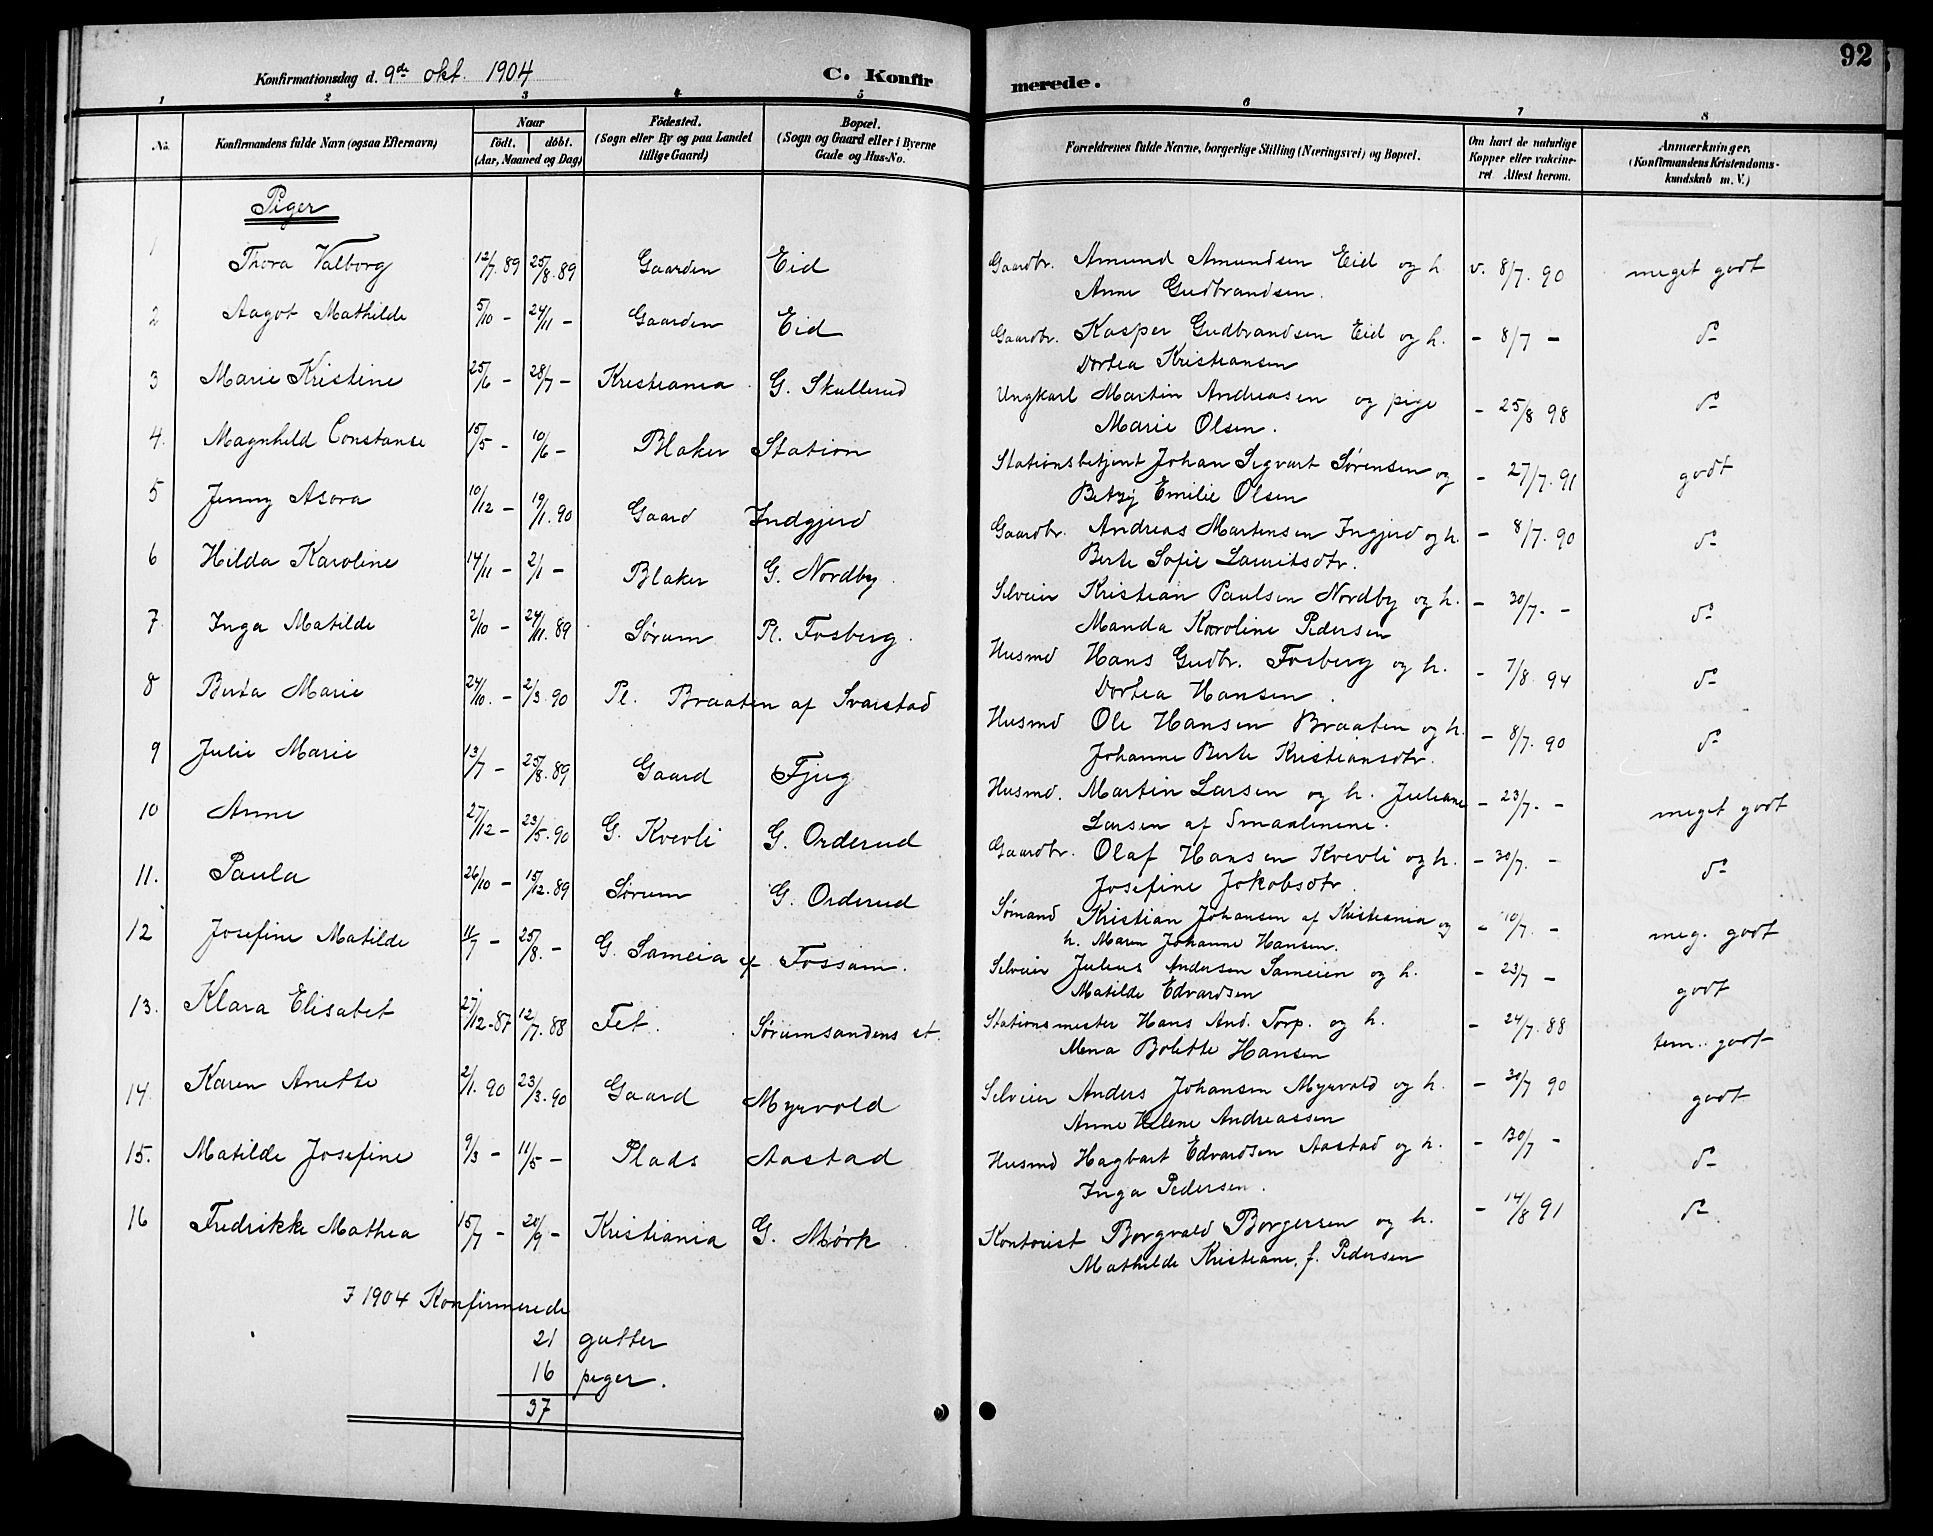 92
Konfirmationsdag d. 9de okt. 1904 C. Konfirmerede.
1 2 3 4 5 6 7 8
No. Konfirmandens fulde Navn (ogsaa Efternavn) Naar födt. döbt. (Aar, Maaned og Dag) Födested. (Sogn eller By og paa Landet tillige Gaard) Bopæl. (Sogn og Gaard eller i Byerne Gade og Hus-No. Forældrenes fulde Navne, borgerlige Stilling (Næringsvei) og Bopæl. Om havt de naturlige Kopper eller vakcineret Attest herom. Anmærkninger. (Konfirmandens Kristendomskundskab m. V.)
Piger
1 Thora Valborg 12/7 89 25/8. 89 Gaarden Eid Gaardbr. Amund Amundsen Eid og h. v. 8/7. 90 meget godt
Anne Gudbrandsen.
2 Aagot Mathilde 5/10 - 24/11 - Gaarden Eid Gaardbr. Kasper Gudbrandsen Eid og h. - 8/7 - do
Dortea Kristiansen
3 Marie Kristine 25/6 - 28/7 - Kristiania G. Skullerud Ungkarl Martin Andreasen og pige - 25/8 98 do
Marie Olsen.
4. Magnhild Constanse 15/5 - 10/6 - Blaker Station Stationsbetjent Johan Sigvart Sørensen og - 27/7. 91 godt
Betzy Emilie Olsen
5 Jenny Asora 10/12 - 19/1. 90 Gaard Indgjerd Gaardbr. Andreas Martinsen Ingjerd og h. - 8/7. 90 do
Berte Sofie Lauritsdtr.
6 Hilda Karoline 14/11 - 2/1 - Blaker G. Nordby. Selveier Kristian Paulsen Nordby og h. - 30/7. - do
Manda Karoline Pedersen
7. Inga Matilde 2/10 - 24/11. 89 Sørum Pl. Fosberg. Husmd Hans Gudbr. Fosberg og h. - 7/8. 94 do
Dortea Hansen.
8 Berta Marie 24/10. - 2/3. 90 Pl. Braaten af Svarstad Husmd Ole Hansen Braaten og h. - 8/7. 90 do
Johanne Berte Kristiansdtr.
9 Julie Marie 13/7 - 25/8. 89 Gaard Fjug Husmd. Martin Larsen og h. Juliane - 23/7. - meget godt
Larsen af Smaalenene.
10 Anne 27/12 - 23/5. 90 G. Kvevli G. Orderud Gaardbr. Olaf Hansen Kvevli og h. - 30/7. - do
Josefine Jokobsdtr.
11. Paula 26/10 - 15/12. 89 Sørum G. Orderud Sømand Kristian Johansen af Kristiania og - 10/7. - meg. godt
h. Maren Johanne Hansen.
12 Josefine Matilde 11/7 - 25/8. - G. Sameia af Fossum. Selveier Julius Andersen Sameien og h. - 23/7 - godt
Matilde Edvardsen
13. Klara Elisabet 27/12 - 87 12/7. 88 Fet. Sørumsandens st. Stationsmester Hans And. Torp. og h. - 24/7. 88 tem. godt
Mena Bolette Hansen
14. Karen Anette 2/1. 90 23/3. 90 Gaard Myrvold Selveier Anders Johansen Myrvold og h. - 30/7 90 godt
Anne Helene Andreassen
15. Matilde Josefine 9/3 - 11/5 - Plads Aastad Husmd Hagbart Edvardsen Aastad og h. - 30/7 - do
Inga Pedersen.
16 Fredrikke Mathea 15/7 - 20/9 - Kristiania G. Mørk Kontorist Borgvald Borgersen og h. - 14/8 91 do
Mathilde Kristiane, f. Pedersen
I 1904 Konfirmerede
21 gutter
16 piger.
37